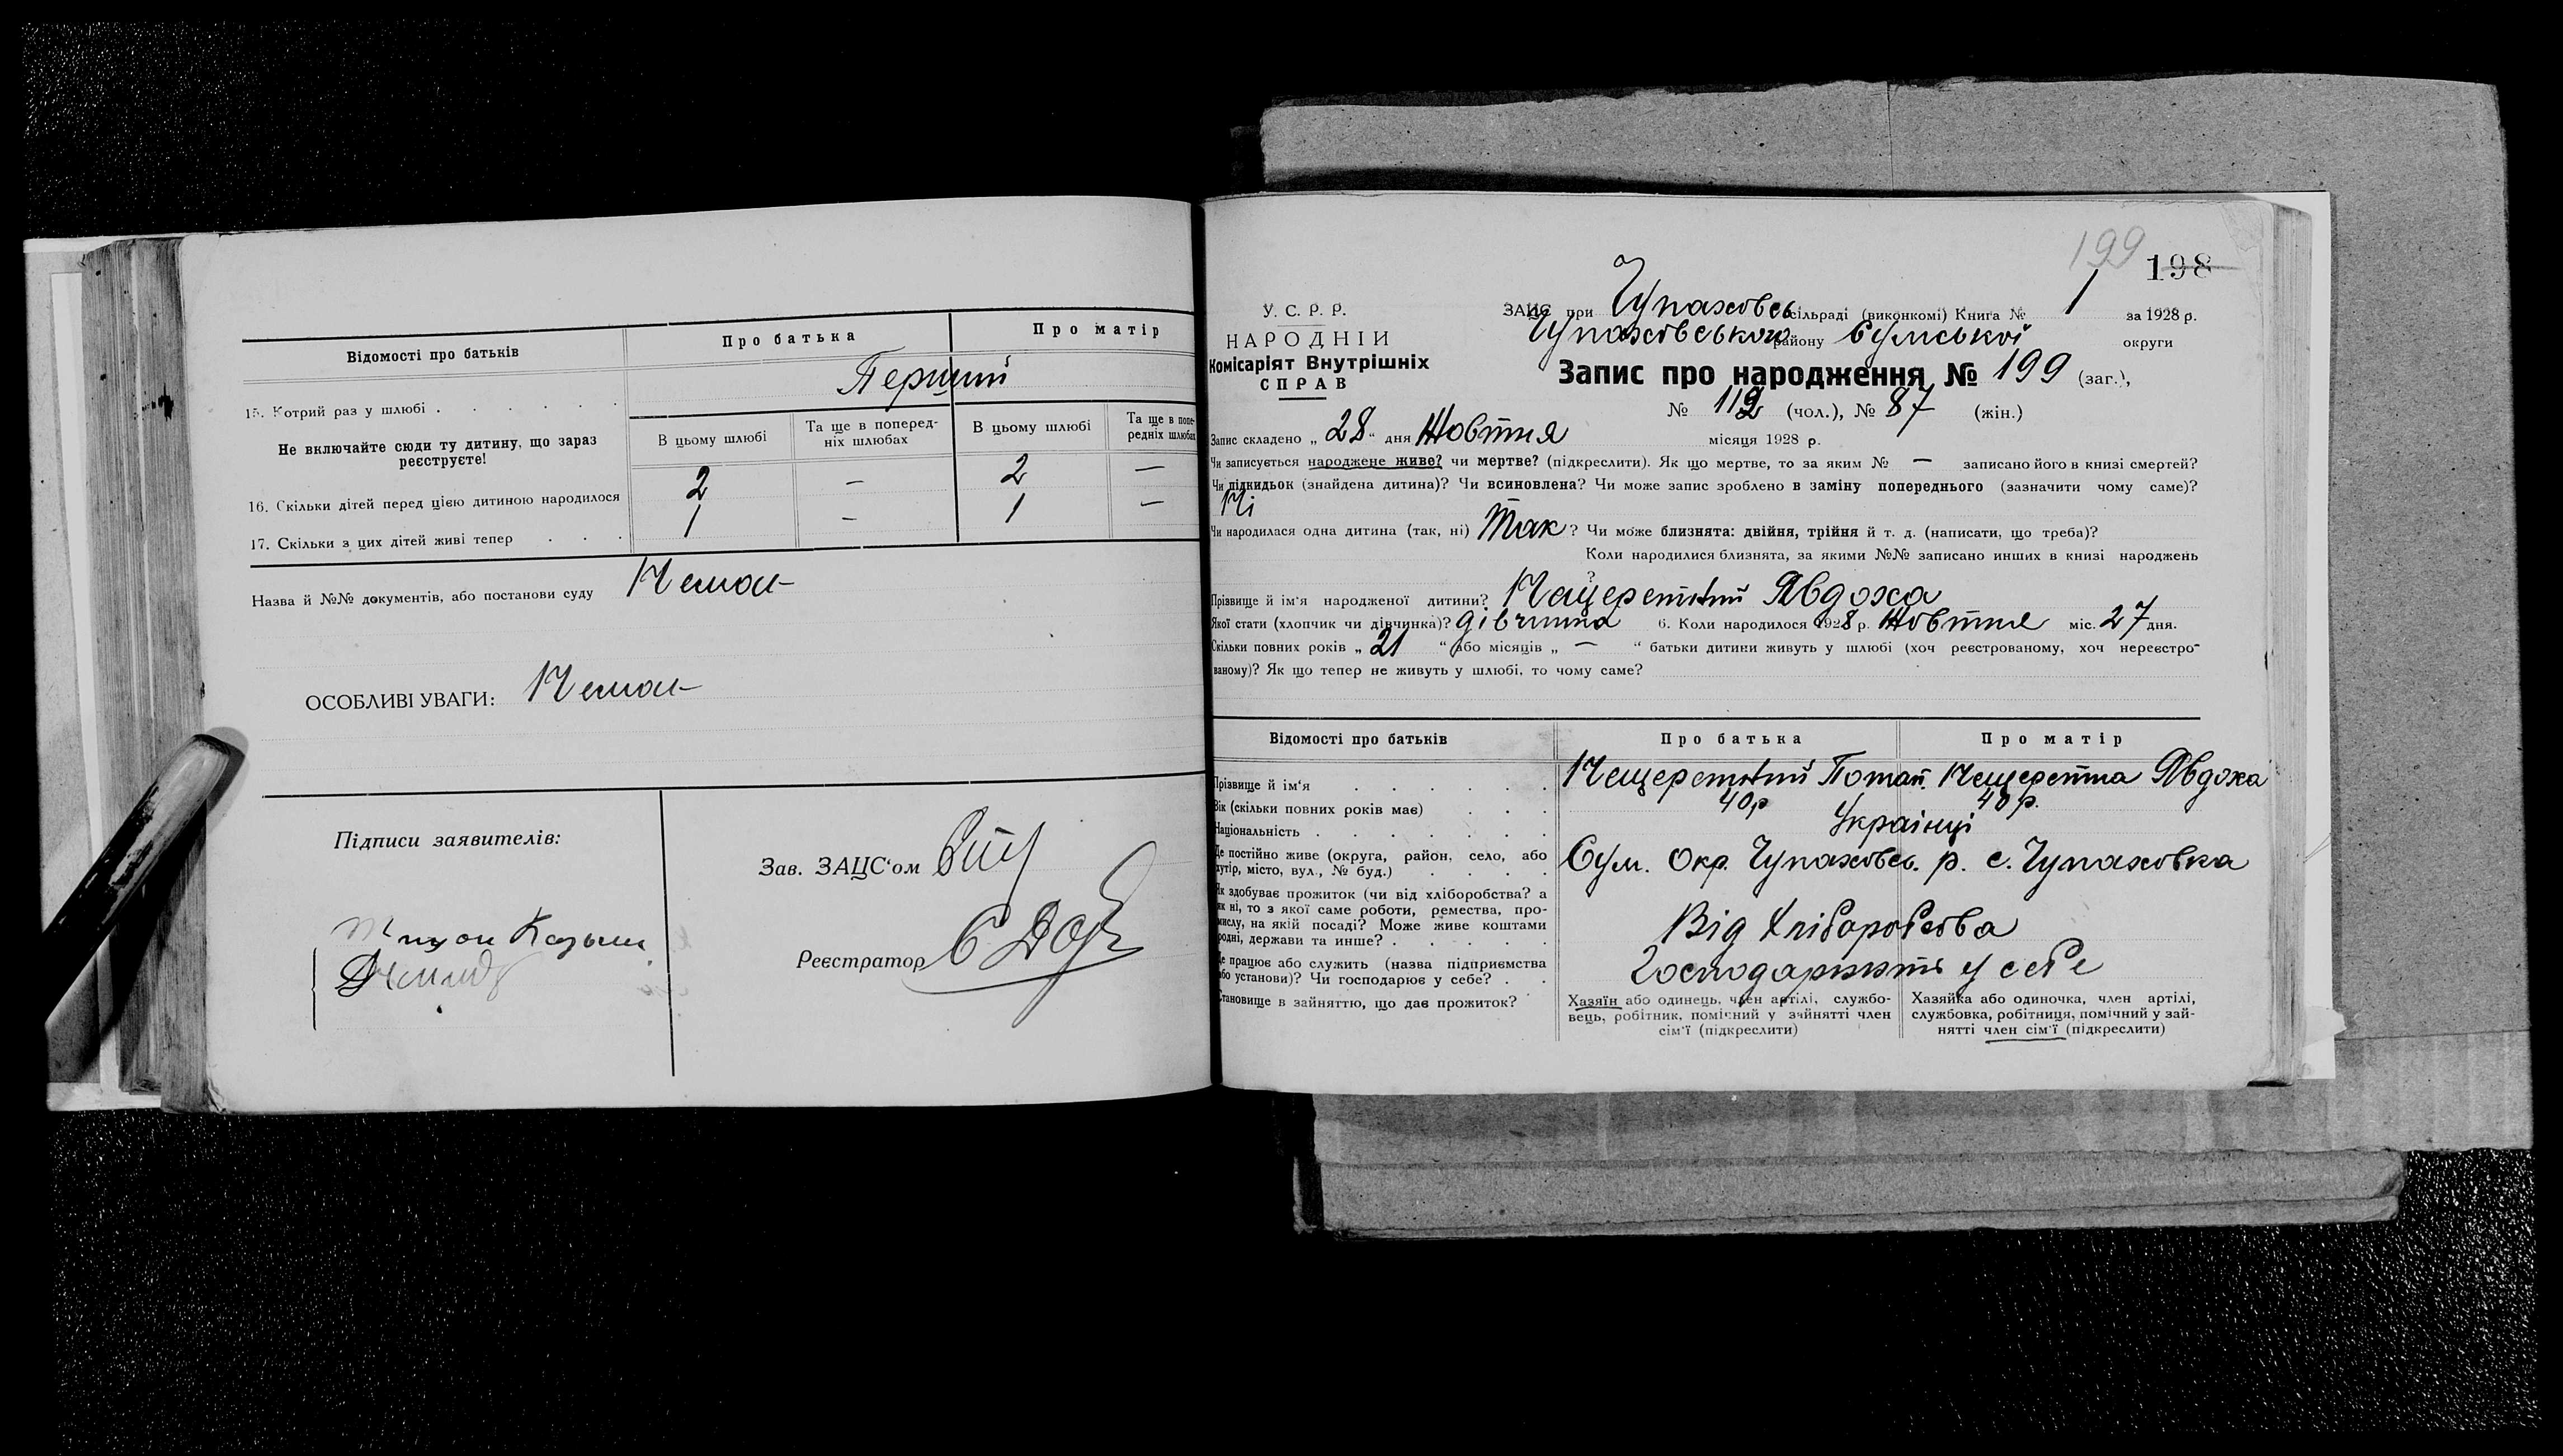 Відомості про батьків
Про батька
Про матір
15. Котрий раз у шлюбі
Перший
Не включайте сюди ту дитину, що зараз
реєструєте!
В цьому шлюбі
Та ще в поперед-
ніх шлюбах
В цьому шлюбі
Та ще в попе-
редніх шлюбах
16. Скільки дітей перед цією дитиною народилося 2 — 2 —
17. Скільки з цих дітей живі тепер 1 — 1 —
Назва й №№ документів, або постанови суду Немає
ОСОБЛИВІ УВАГИ: Немає
Підписи заявителів:
Зав. ЗАЦС'ом
Реєстратор
199
198
У. С. Р. Р.
НАРОДНІЙ
Комісаріят Внутрішніх
СПРАВ
ЗАЦС при Чупаховсь сільраді (виконкомі) Книга № 1 за 1928 р.
Чупаховського району Сумської округи
Запис про народження № 199 (заг.),
№ 112 (чол.), № 87 (жін.)
Запис складено „ 28 “ дня Жовтня місяця 1928 р.
Чи записується народжене живе? чи мертве? (підкреслити). Як що мертве, то за яким № — записано його в книзі смертей?
Чи підкидьок (знайдена дитина)? Чи всиновлена? Чи може запис зроблено в заміну попереднього (зазначити чому саме)?
Ні
Чи народилася одна дитина (так, ні) Так ? Чи може близнята: двійня, трійня й т. д. (написати, що треба)?
Коли народилися близнята, за якими №№ записано инших в книзі народжень
?
Прізвище й ім'я народженої дитини? Явдоха
Якої стати (хлопчик чи дівчинка)? дівчина 6. Коли народилося 1928 р. Жовтня міс. 27 дня.
Скільки повних років „ 21 “ або місяців „ — “ батьки дитини живуть у шлюбі (хоч реєстрованому, хоч нереєстро-
ваному)? Як що тепер не живуть у шлюбі, то чому саме?
Відомості про батьків
Про батька
Про матір
Прізвище й ім'я Потап. Нещеретна Явдоха
Вік (скільки повних років має) 40р 40 р.
Національність Українці
Де постійно живе (округа, район, село, або
хутір, місто, вул., № буд.)
Сум. Окр. Чупаховсь. р. с. Чупаховка
Як здобуває прожиток (чи від хліборобства? а
як ні, то з якої саме роботи, ремества, про-
мислу, на якій посаді? Може живе коштами
родні, держави та инше?
Від Хліборобства
Де працює або служить (назва підприємства
або установи)? Чи господарює у себе?
Господарюють у себе
Становище в зайняттю, що дає прожиток?
Хазяїн або одинець, член артілі, службо-
вець, робітник, помічний у зайнятті член
сім'ї (підкреслити)
Хазяйка або одиночка, член артілі,
службовка, робітниця, помічний у зай-
нятті член сім'ї (підкреслити)